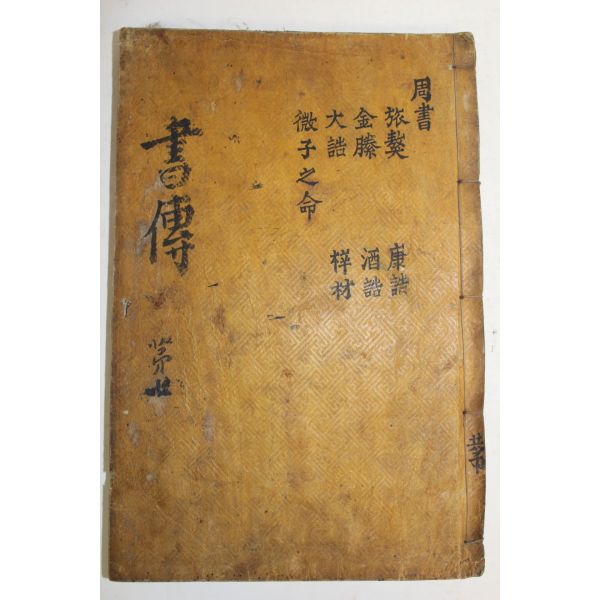 周書
旅獒 康誥
金縢 酒誥
大誥 梓材
微子之命
書傳
第
共